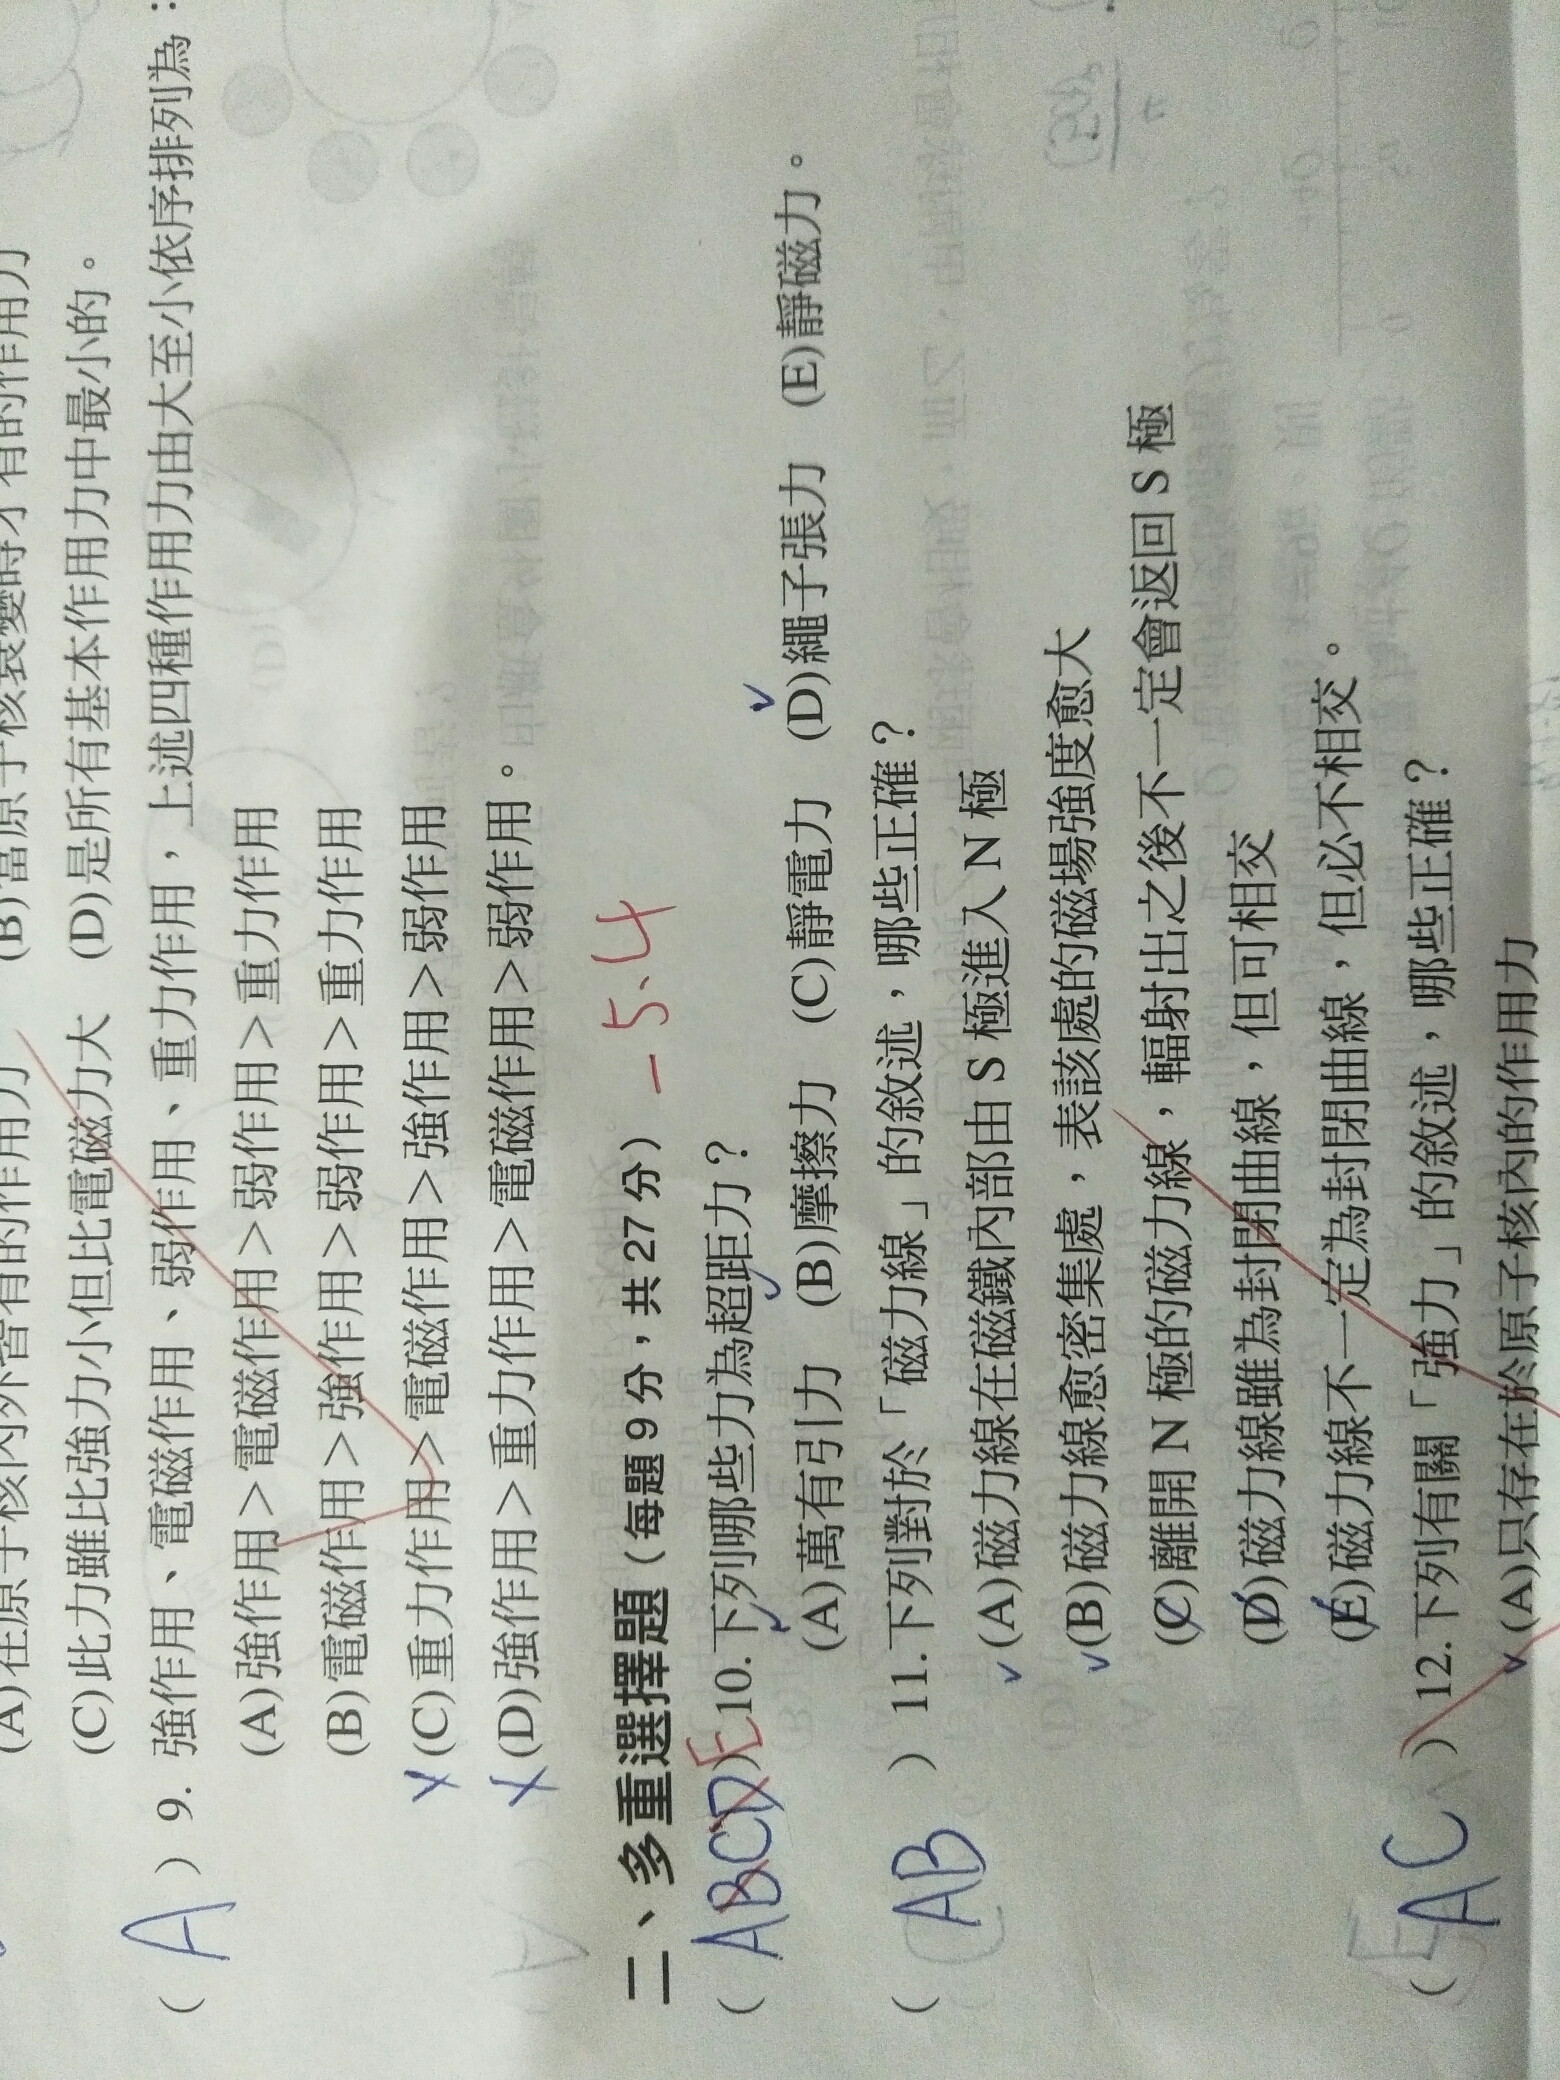 (A)在原子核內外皆有的作用力 (B)當原子核衰變時才有的作用力
(C)此力雖比強力小但比電磁力大 (D)是所有基本作用力中最小的。
( A ) 9. 強作用、電磁作用、弱作用、重力作用，上述四種作用力由大至小依序排列為：
(A)強作用＞電磁作用＞弱作用＞重力作用
(B)電磁作用＞強作用＞弱作用＞重力作用
(C)重力作用＞電磁作用＞強作用＞弱作用
(D)強作用＞重力作用＞電磁作用＞弱作用。
二、多重選擇題（每題 9 分，共 27 分） －5.4
( ABCD E ) 10.下列哪些力為超距力？
(A)萬有引力 (B)摩擦力 (C)靜電力 (D)繩子張力 (E)靜磁力。
( AB ) 11.下列對於「磁力線」的敘述，哪些正確？
(A)磁力線在磁鐵內部由 S 極進入 N 極
(B)磁力線愈密集處，表該處的磁場強度愈大
(C)離開 N 極的磁力線，輻射出之後不一定會返回 S 極
(D)磁力線雖為封閉曲線，但可相交
(E)磁力線不一定為封閉曲線，但必不相交。
( AC ) 12.下列有關「強力」的敘述，哪些正確？
(A)只存在於原子核內的作用力